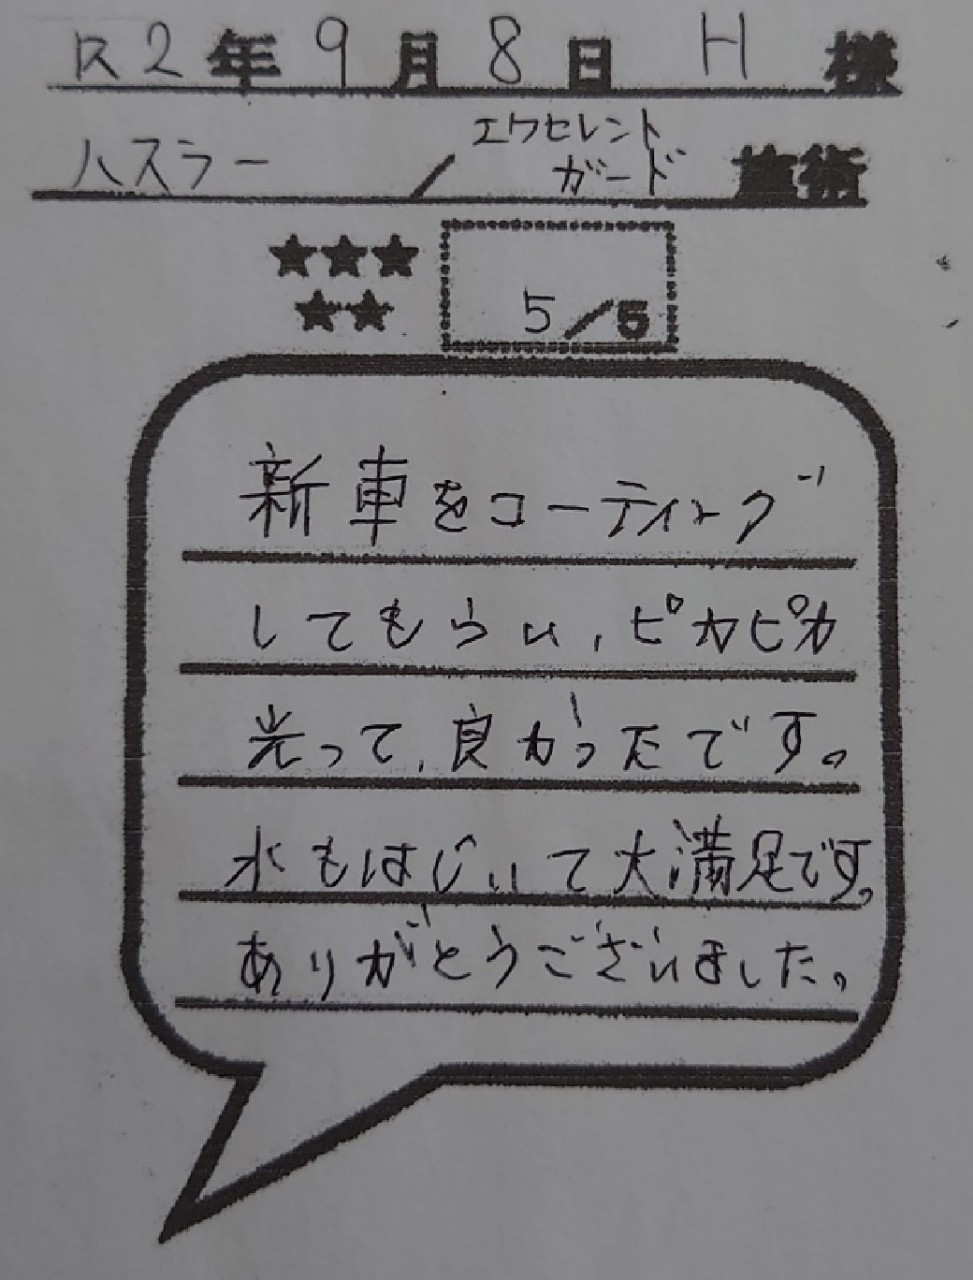 R2年9月8日 H 様
ハスラー / エクセレントガード 施術
★★★
★★
5/5
新車をコーティング
してもらい、ピカピカ
光って、良かったです。
水もはじいて大満足です。
ありがとうございました。